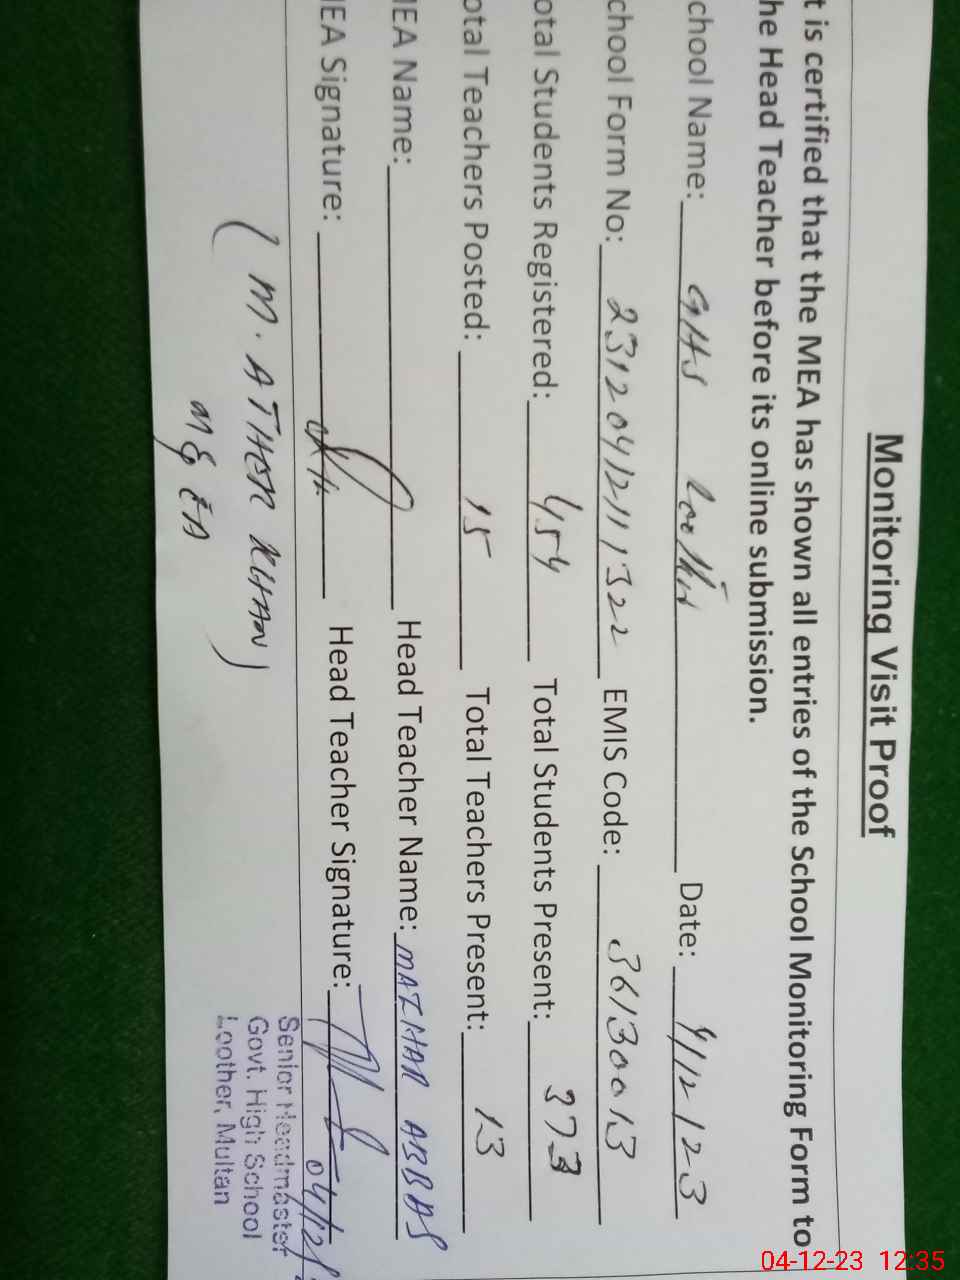 Monitoring Visit Proof
t is certified that the MEA has shown all entries of the School Monitoring Form to
he Head Teacher before its online submission.
chool Name: GHS Date: 4/12/23
chool Form No: 23120412111322 EMIS Code: 36130013
otal Students Registered: 454 Total Students Present: 373
otal Teachers Posted: 15 Total Teachers Present: 13
MEA Name: Head Teacher Name: MAZHAR ABBAS
MEA Signature: Head Teacher Signature:
(M. ATHER KHAN)
MEA
Senior Headmaster
Govt. High School
Loother, Multan
04-12-23 12:35